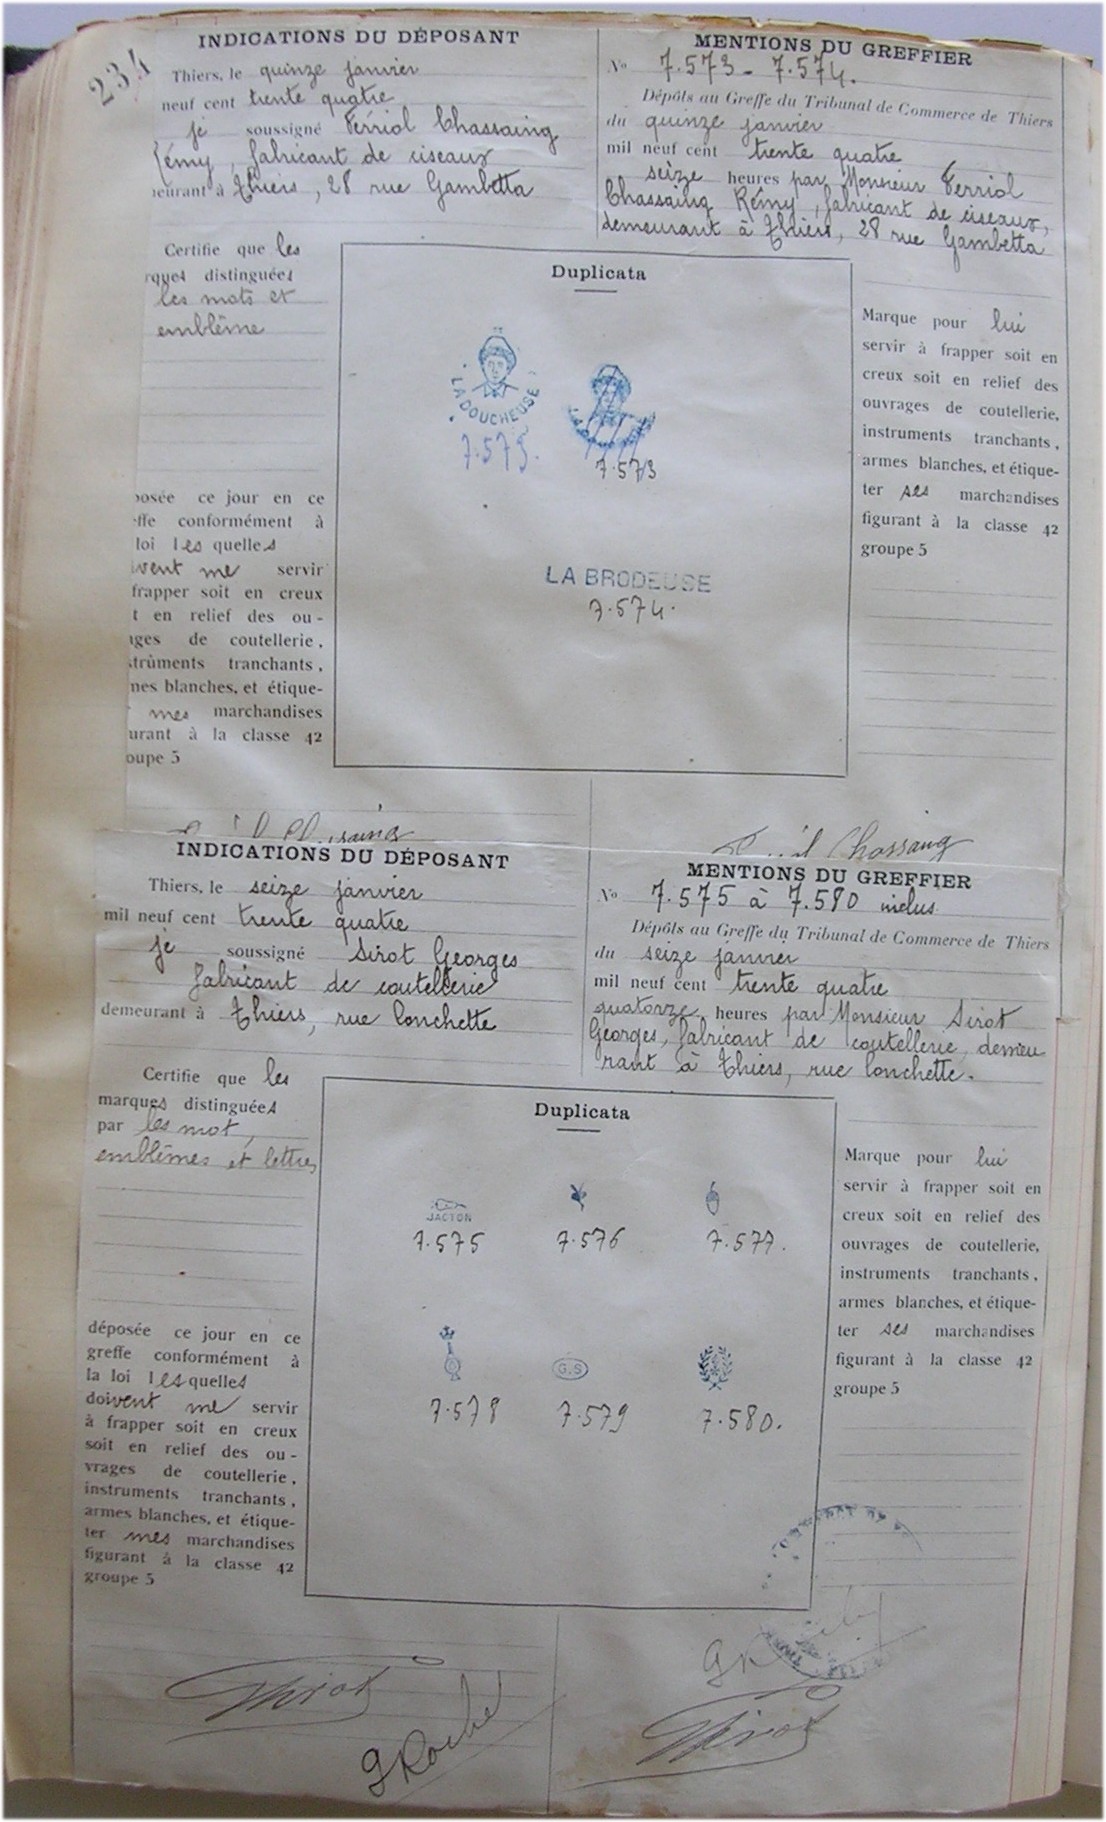 234
INDICATIONS DU DÉPOSANT
Thiers, le quinze janvier
neuf cent trente quatre
je soussigné Ferriol Chassaing
Rémy, fabricant de ciseaux
meurant à Thiers, 28 rue Gambetta
Certifie que les
rques distinguées
les mots et
emblême
posée ce jour en ce
effe conformément à
loi les quelles
ivent me servir
frapper soit en creux
t en relief des ou-
ages de coutellerie,
strûments tranchants,
mes blanches, et étique-
mes marchandises
urant à la classe 42
oupe 5
MENTIONS DU GREFFIER
No 7.573 - 7.574.
Dépôts au Greffe du Tribunal de Commerce de Thiers
du quinze janvier
mil neuf cent trente quatre
seize heures par Monsieur Ferriol
Chassaing Rémy, fabricant de ciseaux,
demeurant à Thiers, 28 rue Gambetta
Duplicata
LA DOUCHEUSE
7.573.
7.573
LA BRODEUSE
7.574.
Marque pour lui
servir à frapper soit en
creux soit en relief des
ouvrages de coutellerie,
instruments tranchants,
armes blanches, et étique-
ter ses marchandises
figurant à la classe 42
groupe 5
Chassaing
INDICATIONS DU DÉPOSANT
Thiers, le seize janvier
mil neuf cent trente quatre
je soussigné Sirot Georges
fabricant de coutellerie
demeurant à Thiers, rue Conchette
Certifie que les
marques distinguées
par les mot,
emblêmes et lettres
déposée ce jour en ce
greffe conformément à
la loi lesquelles
doivent me servir
à frapper soit en creux
soit en relief des ou-
vrages de coutellerie,
instruments tranchants,
armes blanches, et étique-
ter mes marchandises
figurant à la classe 42
groupe 5
MENTIONS DU GREFFIER
No 7.575 à 7.580 inclus
Dépôts au Greffe du Tribunal de Commerce de Thiers
du seize janvier
mil neuf cent trente quatre
quatorze heures par Monsieur Sirot
Georges, fabricant de coutellerie, demeu
rant à Thiers, rue Conchette.
Duplicata
JACTON
7.575 7.576 7.577.
G.S
7.578 7.579 7.580.
Marque pour lui
servir à frapper soit en
creux soit en relief des
ouvrages de coutellerie,
instruments tranchants,
armes blanches, et étique-
ter ses marchandises
figurant à la classe 42
groupe 5
GSirot
GRoche
GSirot